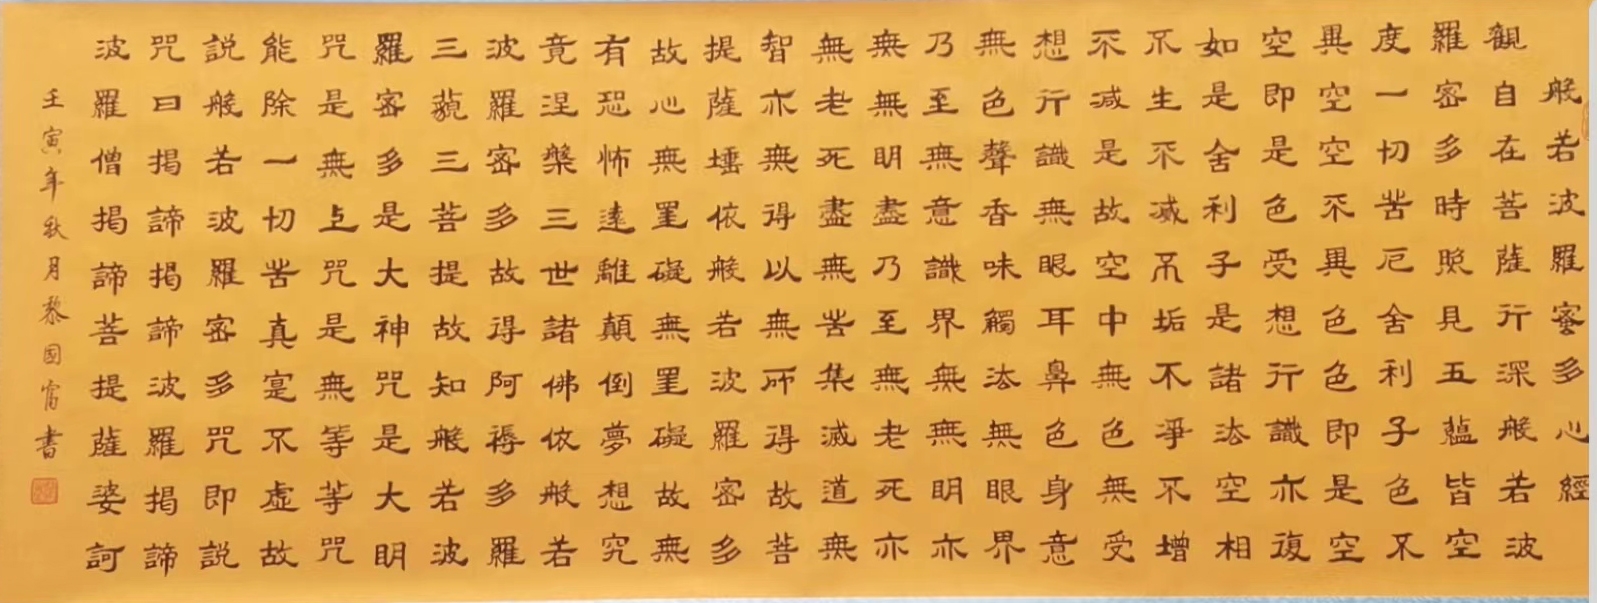 般若波羅蜜多心經
觀自在菩薩行深般若波
羅密多時照見五蘊皆空
度一切苦厄舍利子色不
異空空不異色色即是空
空即是色受想行識亦復
如是舍利子是諸法空相
不生不滅不垢不淨不增
不減是故空中無色無受
想行識無眼耳鼻色身意
無色聲香味觸法無眼界
乃至無意識界無無明亦
無無明盡乃至無老死亦
無老死盡無苦集滅道無
智亦無得以無所得故菩
提薩埵依般若波羅密多
故心無罣礙無罣礙故無
有恐怖遠離顛倒夢想究
竟涅槃三世諸佛依般若
波羅密多故得阿耨多羅
三藐三菩提故知般若波
羅密多是大神咒是大明
咒是無上咒是無等等咒
能除一切苦真實不虛故
說般若波羅密多咒即說
咒曰揭諦揭諦波羅揭諦
波羅僧揭諦菩提薩婆訶
壬寅年秋月黎國富書